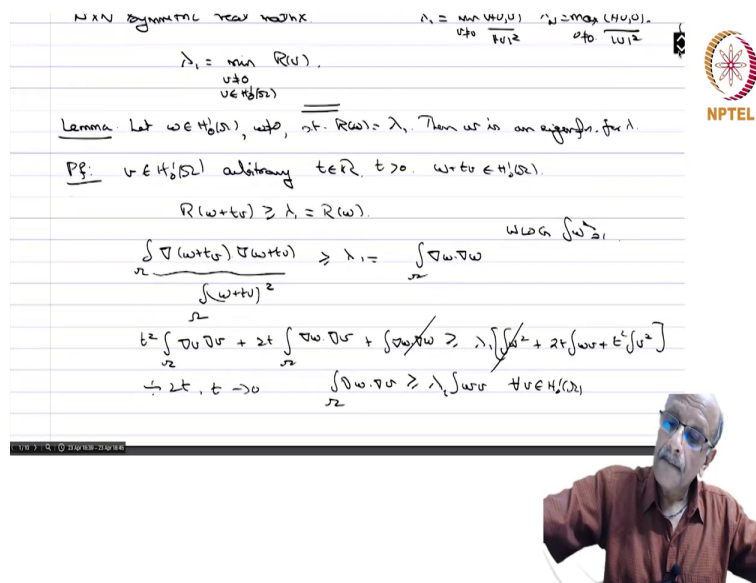 N×N symmetric real matrix. λ₁ = min_{v≠0} (Av,v)/|v|² λ_N = max_{v≠0} (Av,v)/|v|².
λ₁ = min R(v).
v≠0
v∈H₀¹(Ω)
NPTEL
Lemma. Let w∈H₀¹(Ω), w≠0, s.t. R(w) = λ₁. Then w is an eigenfn. for λ₁
Pf: v∈H₀¹(Ω) arbitrary t∈ℝ, t>0. w+tv ∈ H₀¹(Ω).
R(w+tv) ≥ λ₁ = R(w).
WLOG ∫w²=1.
∫_Ω ∇(w+tv).∇(w+tv) / ∫_Ω (w+tv)² ≥ λ₁ = ∫_Ω ∇w.∇w
t² ∫_Ω ∇v.∇v + 2t ∫_Ω ∇w.∇v + ∫∇w.∇w ≥ λ₁[∫w² + 2t∫wv + t²∫v²]
÷ 2t, t→0 ∫_Ω ∇w.∇v ≥ λ₁∫wv ∀v∈H₀¹(Ω)
1/10 23 Apr 16:39 - 23 Apr 16:45